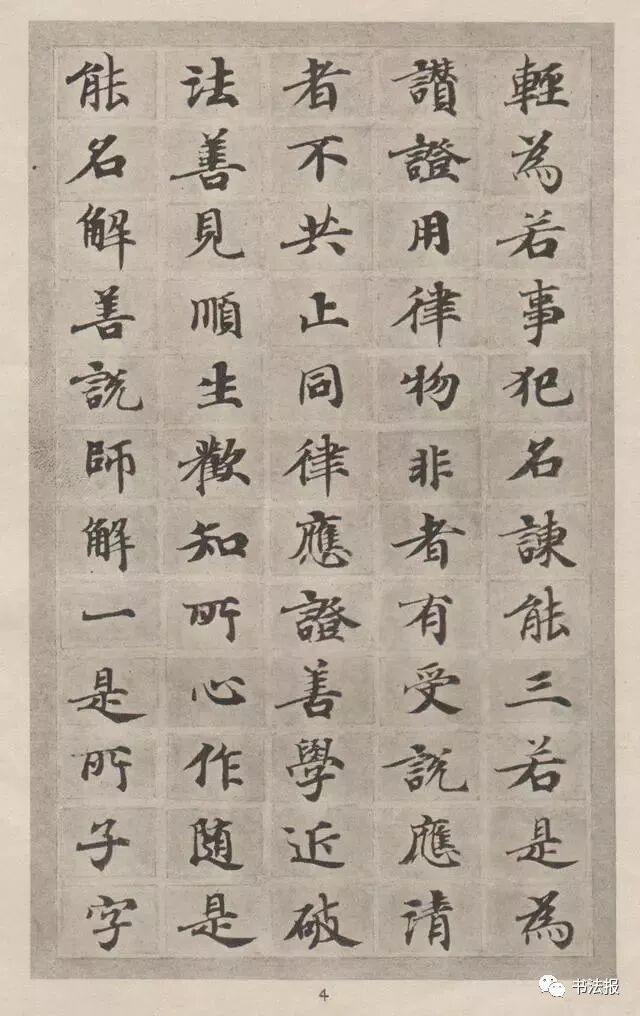 輕為若事犯名諫能三若是為
讃證用律物非者有受說應請
者不共止同律應證善學近破
法善見順生歡知所心作随是
能名解善說師解一是所子字
4
书法报